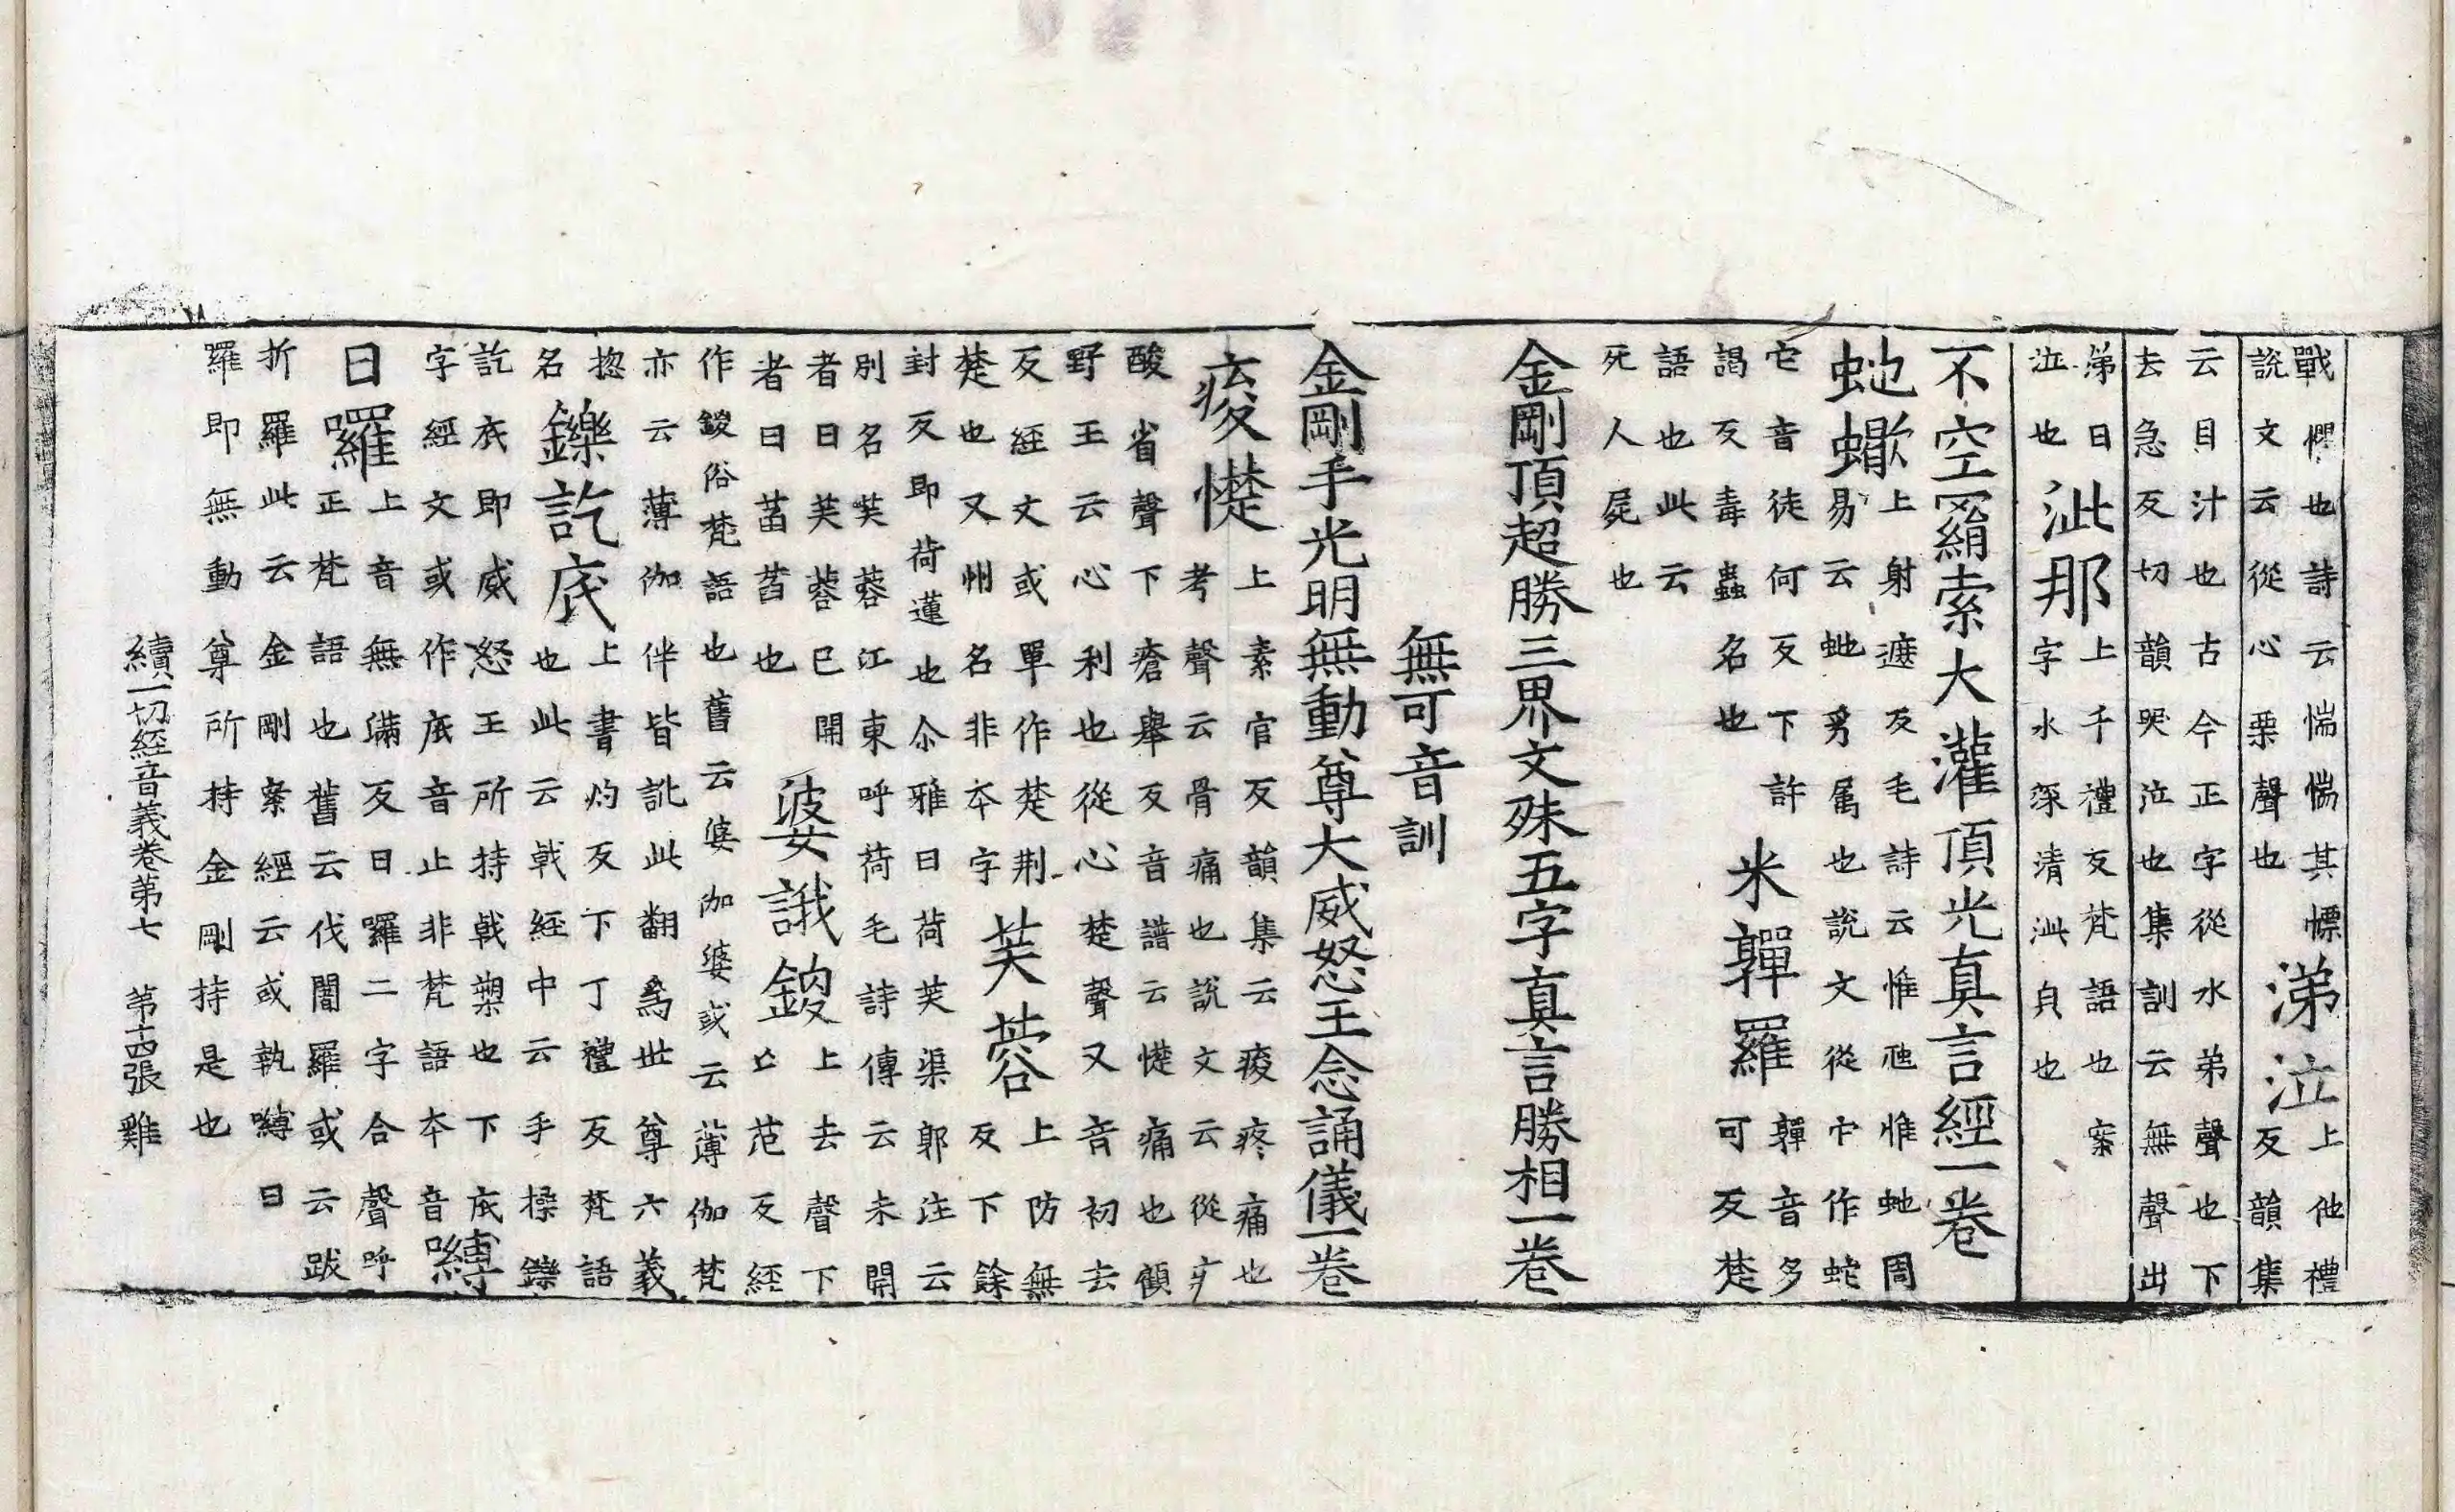 戰慴也詩云惴惴其慓
說文云從心栗聲也
涕泣
上他禮
反韻集
云目汁也古今正字從水弟聲也下
去急反切韻哭泣也集訓云無聲出
涕曰
泣也
泚那
上千禮反梵語也案
字水深清泚皃也
不空羂索大灌頂光真言經一卷
虵蠍
上射遮反毛詩云惟虺惟虵周
易云虵豸属也說文從虫作蛇
它音徒何反下許
謁反毒蟲名也
米軃羅
軃音多
可反楚
語也此云
死人屍也
金剛頂超勝三界文殊五字真言勝相一卷
無可音訓
金剛手光明無動尊大威怒王念誦儀一卷
痠憷
上素官反韻集云痠疼痛也
考聲云骨痛也說文云從疒
酸省聲下瘡舉反音譜云憷痛也顧
野王云心利也從心楚聲又音初去
反經文或單作楚荆
楚也又州名非本字
芙蓉
上防無
反下餘
封反即荷蓮也尒雅曰荷芙渠郭注云
別名芙蓉江東呼荷毛詩傳云未開
者曰芙蓉已開
者曰菡萏也
婆誐鍐
上去聲下
亡范反經
作鍐俗梵語也舊云婆伽婆或云薄伽梵
亦云薄伽伴皆訛此翻為世尊六義
惣
名
鑠訖底
上書灼反下丁禮反梵語
也此云戟經中云手操鑠
訖底即威怒王所持戟槊也下底
字經文或作底音止非梵語本音
嚩
日囉
上音無滿反日囉二字合聲呼
正梵語也舊云伐闍羅或云跋
折羅此云金剛案經云或執嚩日
羅即無動尊所持金剛持是也
續一切經音義卷第七 第十四張 雞